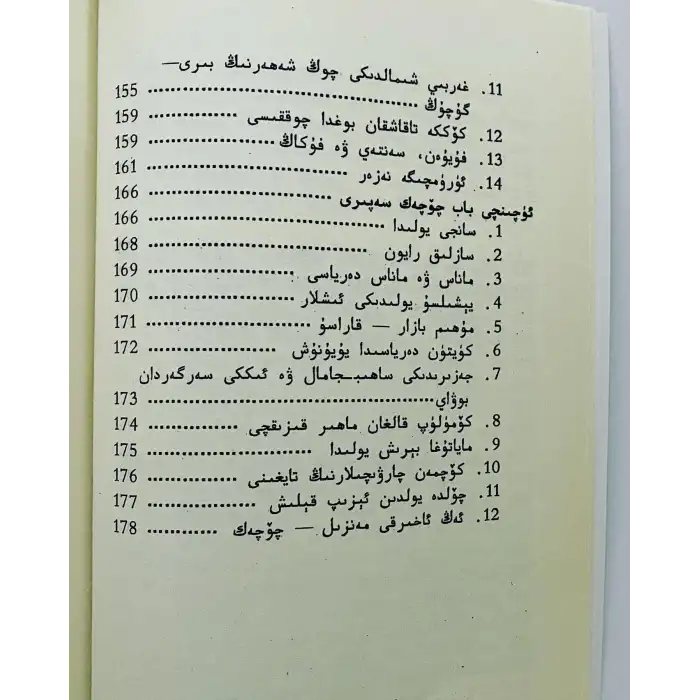 11. غەربىي شىمالدىكى چوڭ شەھەرنىڭ بىرى —
گۇچۇڭ ........ 155
12. كۆككە تاقاشقان بوغدا چوققىسى ........ 159
13. فۇيۈەن، سەنتەي ۋە فۇكاڭ ........ 159
14. ئۈرۈمچىگە نەزەر ........ 161
ئۈچىنچى باب چۆچەك سەپىرى ........ 166
1. سانجى يولىدا ........ 166
2. سازلىق رايون ........ 168
3. ماناس ۋە ماناس دەرياسى ........ 169
4. يېشىلسۇ يولىدىكى ئىشلار ........ 170
5. مۇھىم بازار — قاراسۇ ........ 171
6. كۈيتۈن دەرياسىدا يۇيۇنۇش ........ 172
7. جەزىرىدىكى ساھىبجامال ۋە ئىككى سەرگەردان
بوۋاي ........ 173
8. كۆمۈلۈپ قالغان ماھىر قىزىقچى ........ 174
9. ماياتۇغا بېرىش يولىدا ........ 175
10. كۆچمەن چارۋىچىلارنىڭ تايغىنى ........ 176
11. چۆلدە يولدىن ئېزىپ قېلىش ........ 177
12. ئەڭ ئاخىرقى مەنزىل — چۆچەك ........ 178